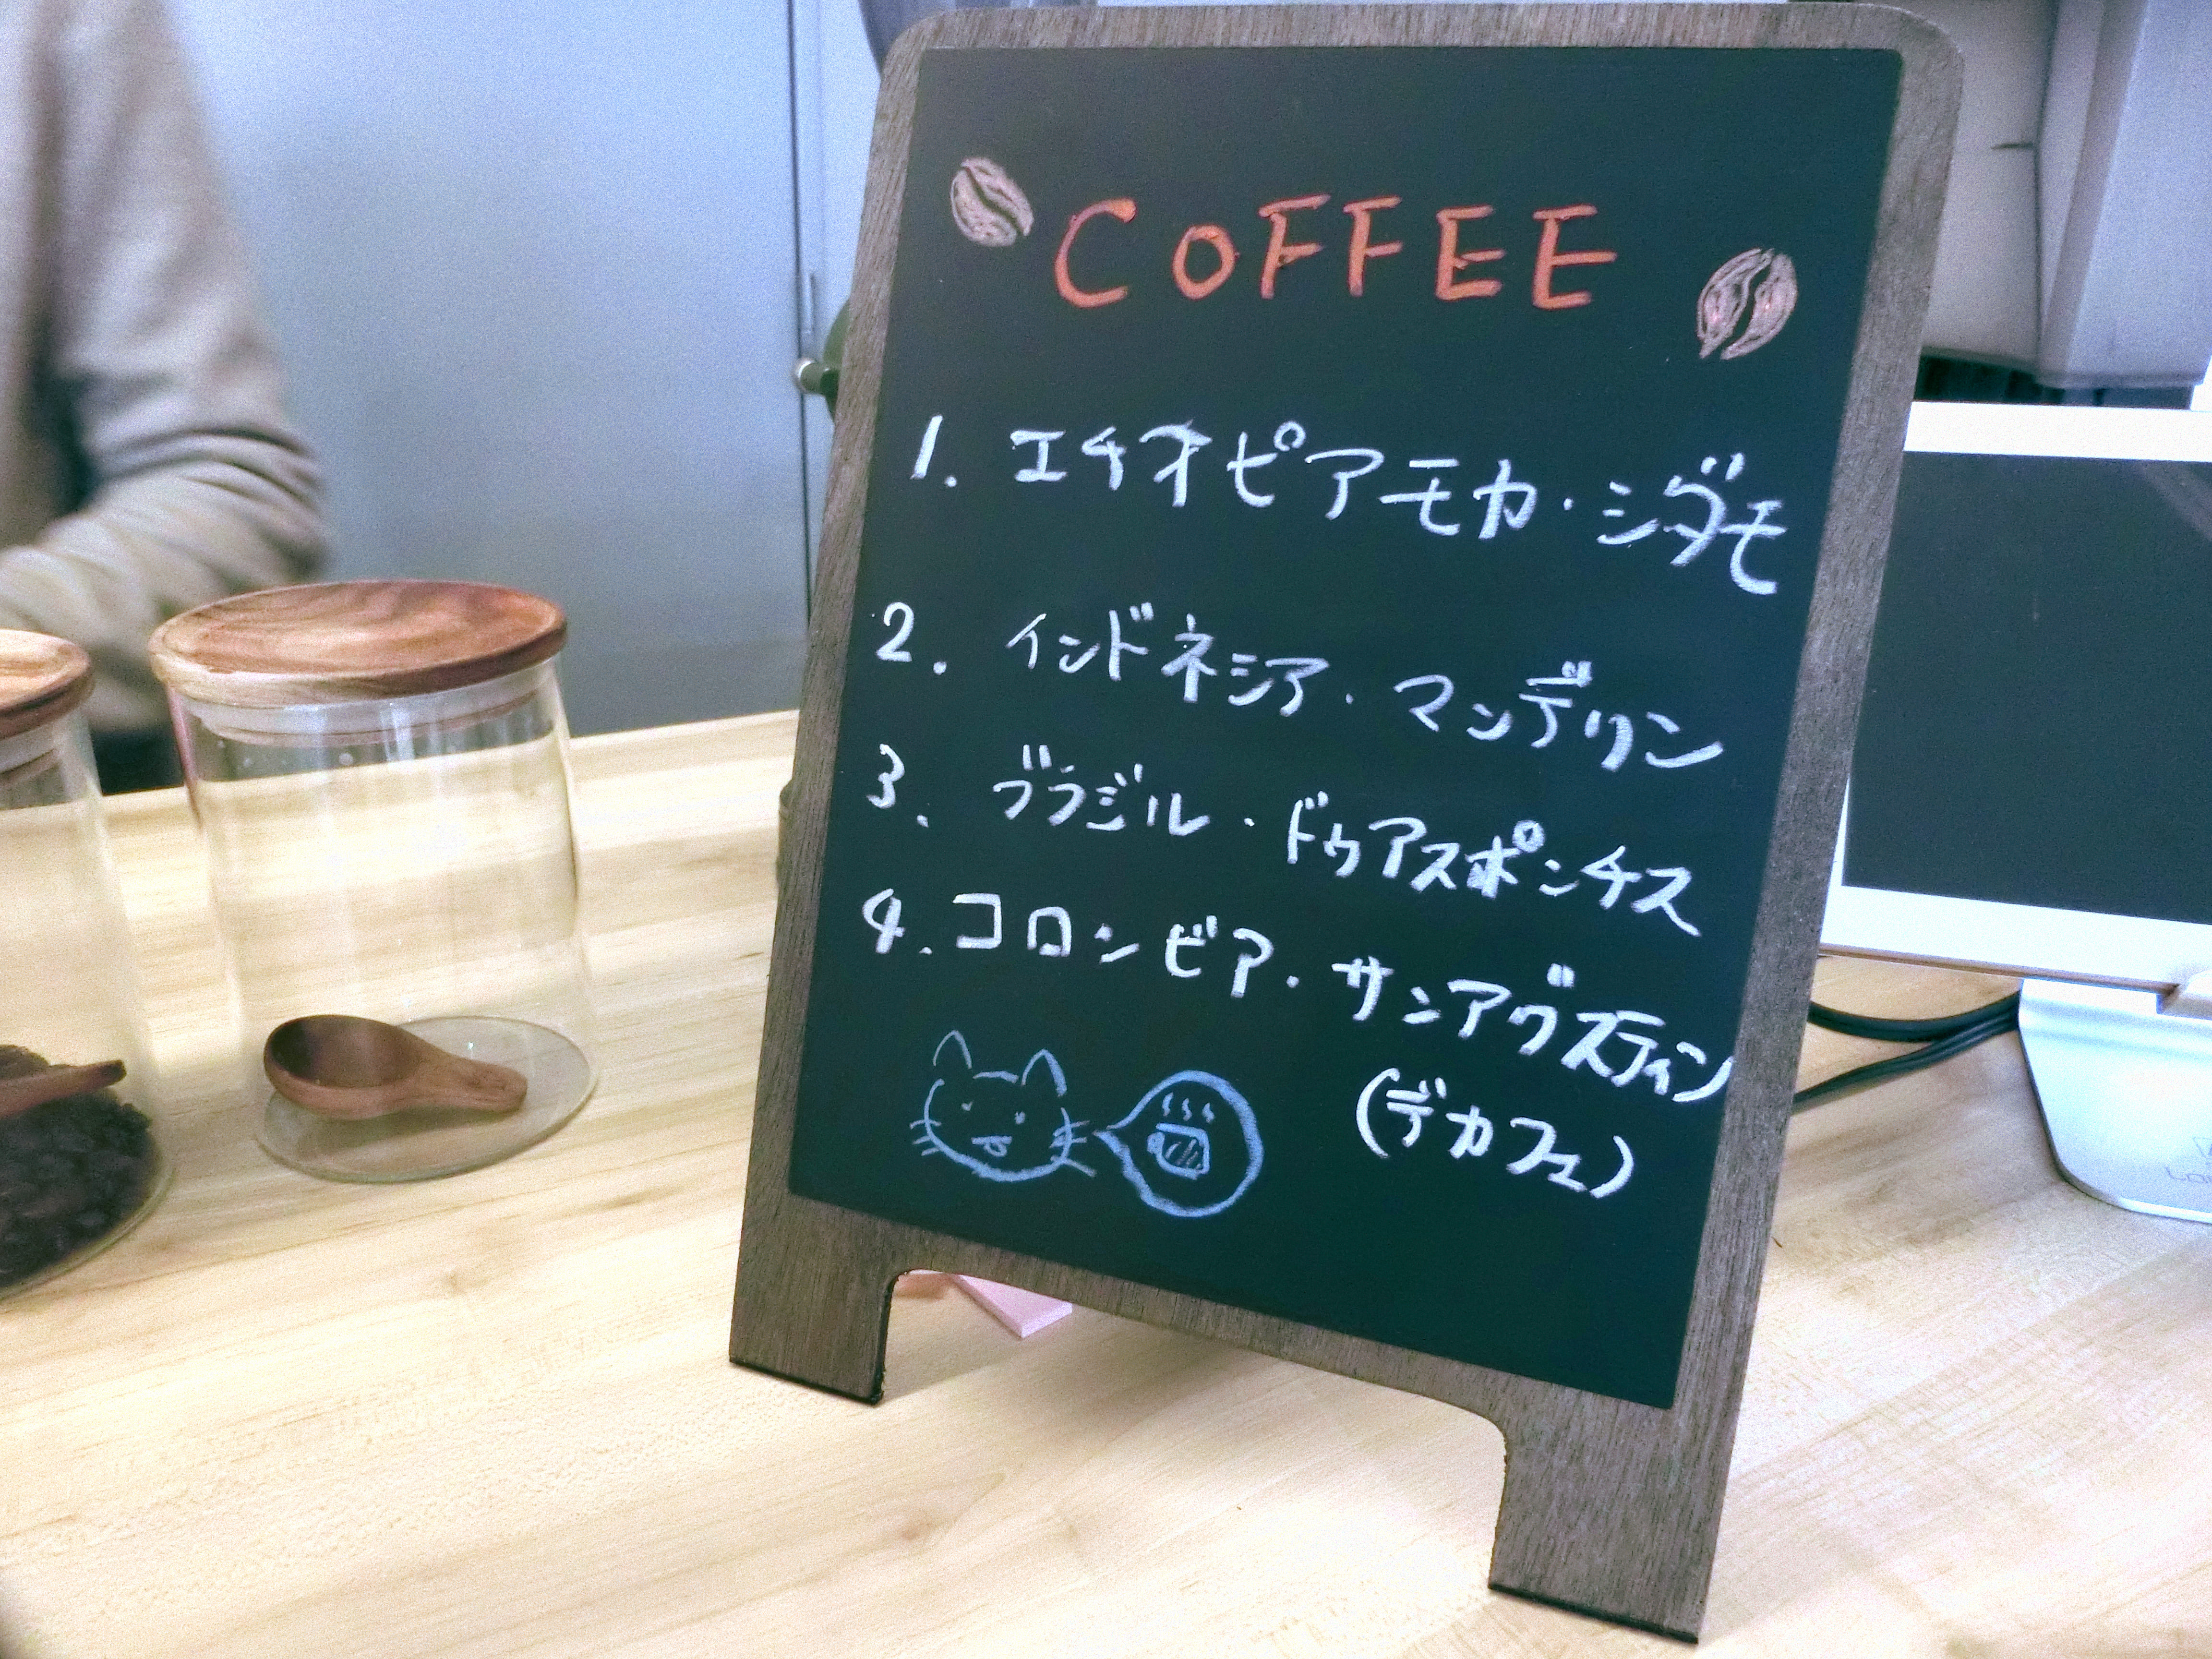 COFFEE
1. エチオピアモカ・シダモ
2. インドネシア・マンデリン
3. ブラジル・ドゥアスポンチス
4. コロンビア・サンアグスティン
(デカフェ)